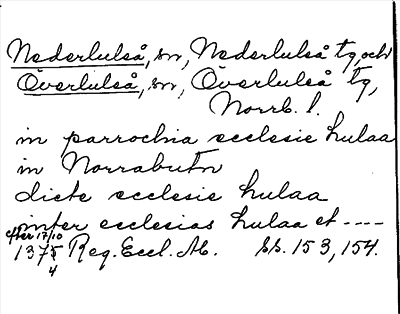 Nederluleå, sn, Nederluleå tg, och
Överluleå, sn, Överluleå tg,
Norrb. l.
in parrochia ecclesie hulaa
in Norrabutn
dicte ecclesie hulaa
inter ecclesias hulaa et ----
efter 17/10
1375 Reg. Eccl. Ab. ss. 153, 154.
4